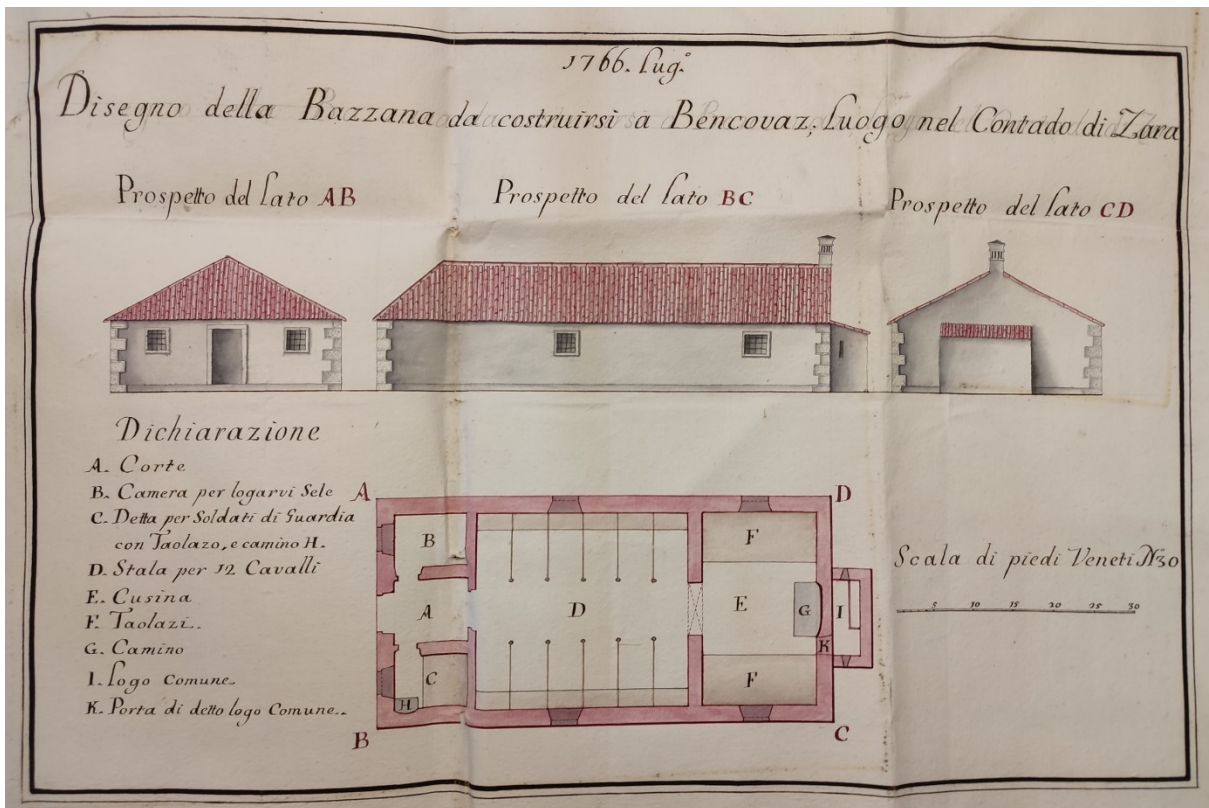 1766. Lug.º
Disegno della Bazzana da costruirsi a Bencovaz; Luogo nel Contado di Zara
Prospetto del Lato AB
Prospetto del Lato BC
Prospetto del Lato CD
Dichiarazione
A. Corte
B. Camera per logarvi Sele
C. Detta per Soldati di Guardia
con Taolazo, e camino H.
D. Stala per 12 Cavalli
E. Cusina
F. Taolazi.
G. Camino
I. Logo Comune.
K. Porta di detto logo Comune.
A
D
B
F
A
D
E
G
I
K
C
H
F
B
C
Scala di piedi Veneti Nº30
5 10 15 20 25 30